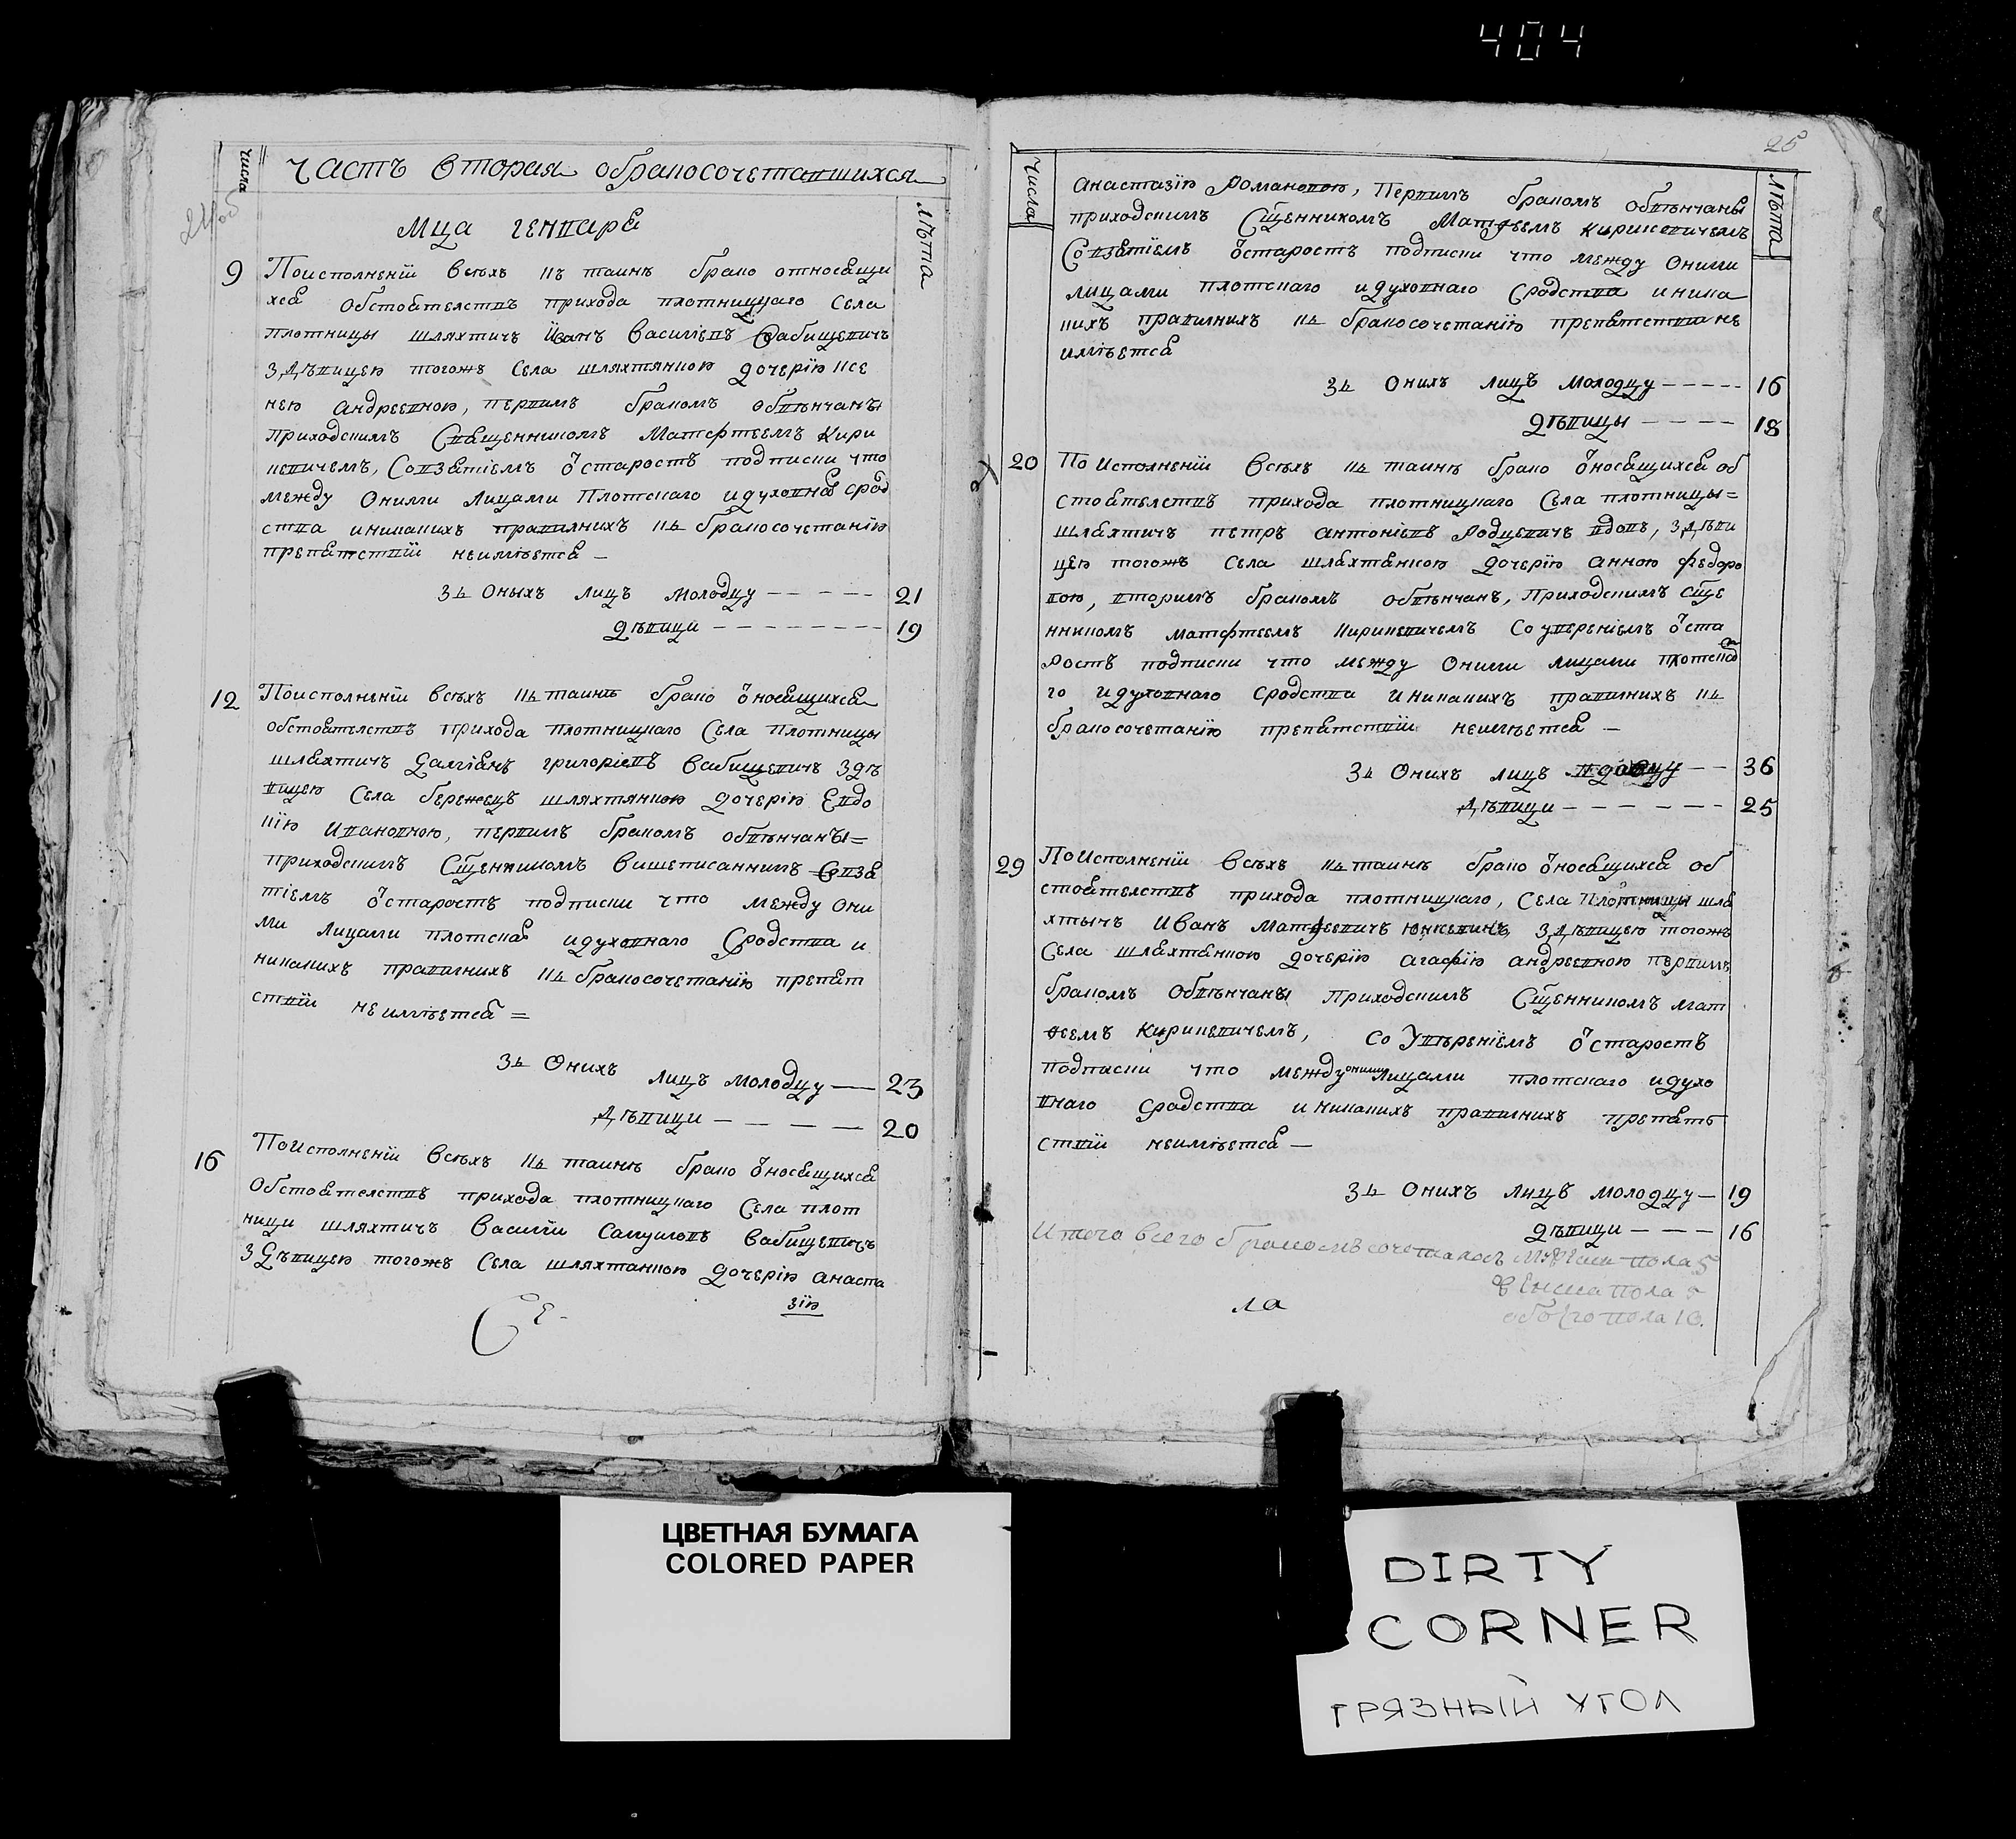 404
25
числа
Частъ вторая обракосочетавшихся
Лѣта
Мца генваря
9
Поисполненіи всѣхъ къ таинѣ брака относящи
хся обстоятелствъ прихода плотницкаго Села
плотницы шляхтичъ Іванъ Василіевъ Вабищевичъ
здѣвицею тогожъ Села шляхтянкою дочерію Ксе
нею андреевною, первимъ бракомъ обвѣнчаны
приходскимъ Священникомъ Матфтеемъ Кири
кевичемъ, Совзятіемъ ѿ старостъ подписки что
между Оними Лицами Плотскаго идуховна срод
ства иникакихъ правилнихъ къ бракосочетанію
препятствій неимѣется —
зъ Оныхъ лицъ молодцу - - - - - 21
дѣвици - - - - - - - - 19
12
Поисполненіи всѣхъ къ таинѣ брака ѿносящихся
обстоятелствъ прихода плотницкаго Села плотницы
шляхтичъ Даміанъ григоріевъ Вабищевичъ здѣ
вицею Села бережецъ шляхтянкою дочерію Евдо
кію Ивановною, первимъ бракомъ обвѣнчаны =
приходскимъ Сщенникомъ вишеписаннимъ Совзя
тіемъ ѿ старостъ подписки что между Они
ми Лицами плотска идуховнаго Сродства и
никакихъ правилнихъ къ бракосочетанію препят
ствій неимѣется =
зъ Онихъ лицъ молодцу — 23
дѣвици - - - - - 20
16
Поисполненіи всѣхъ къ таинѣ брака ѿносящихся
Обстоятелствъ прихода плотницкаго Села плот
ници шляхтичъ Василій Самуиловъ Вабищевичъ
здѣвицею тогожъ Села шляхтанкою дочерію анаста
зію
Числа
Лѣта
анастазію Романовою, Первимъ бракомъ обвѣнчаны
приходскимъ Сщенникомъ Матфеемъ Кирикевичемъ
Совзятіемъ ѿ старостъ подписки что между Оними
лицами плотскаго идуховнаго Сродства иника
кихъ правилнихъ къ бракосочетанію препятствіи не
имѣется
зъ Онихъ лицъ молодцу - - - - - 16
дѣвицы - - - - 18
20
По Исполненіи всѣхъ къ таинѣ брака ѿносящихся об
стоятелствъ прихода плотницкаго Села плотницы =
шляхтич петръ антоніевъ Родцевичъ вдовъ, здѣви
цею тогожъ Села шляхтанкою дочерію анною федоро
вою, вторимъ бракомъ обвѣнчанъ, приходскимъ Сще
нникомъ матфтеемъ кирикевичемъ Со увереніемъ ѿ ста
ростъ подписки что между Оними лицами плотска
го идуховнаго сродства иникакихъ правилнихъ къ
бракосочетанію препятствіи неимѣется —
зъ Онихъ лицъ вдовцу - - 36
дѣвици - - - - - - 25
29
По Исполненіи всѣхъ къ таинѣ брака ѿносящихся об
стоятелствъ прихода плотницкаго, Села Плотницы шля
хтычъ Иванъ Матфеевичъ юнкевичъ, здѣвицею тогожъ
Села шляхтанкою дочерію агафію андреевною первимъ
бракомъ Обвѣнчаны Приходскимъ Сщенникомъ мат
феемъ Кирикевичемъ, Со Увѣреніемъ ѿ старостъ
подписки что между оними Лицами плотскаго идухо
внаго сродства иникакихъ правилнихъ препятъ
ствіи неимѣется —
зъ Онихъ лицъ молодцу — 19
дѣвици - - - 16
Итого всего бракомъ сочеталось мужеск пола 5
женска пола 5
обоего пола 10.
ла
ЦВЕТНАЯ БУМАГА
COLORED PAPER
DIRTY
CORNER
ГРЯЗНЫЙ УГОЛ